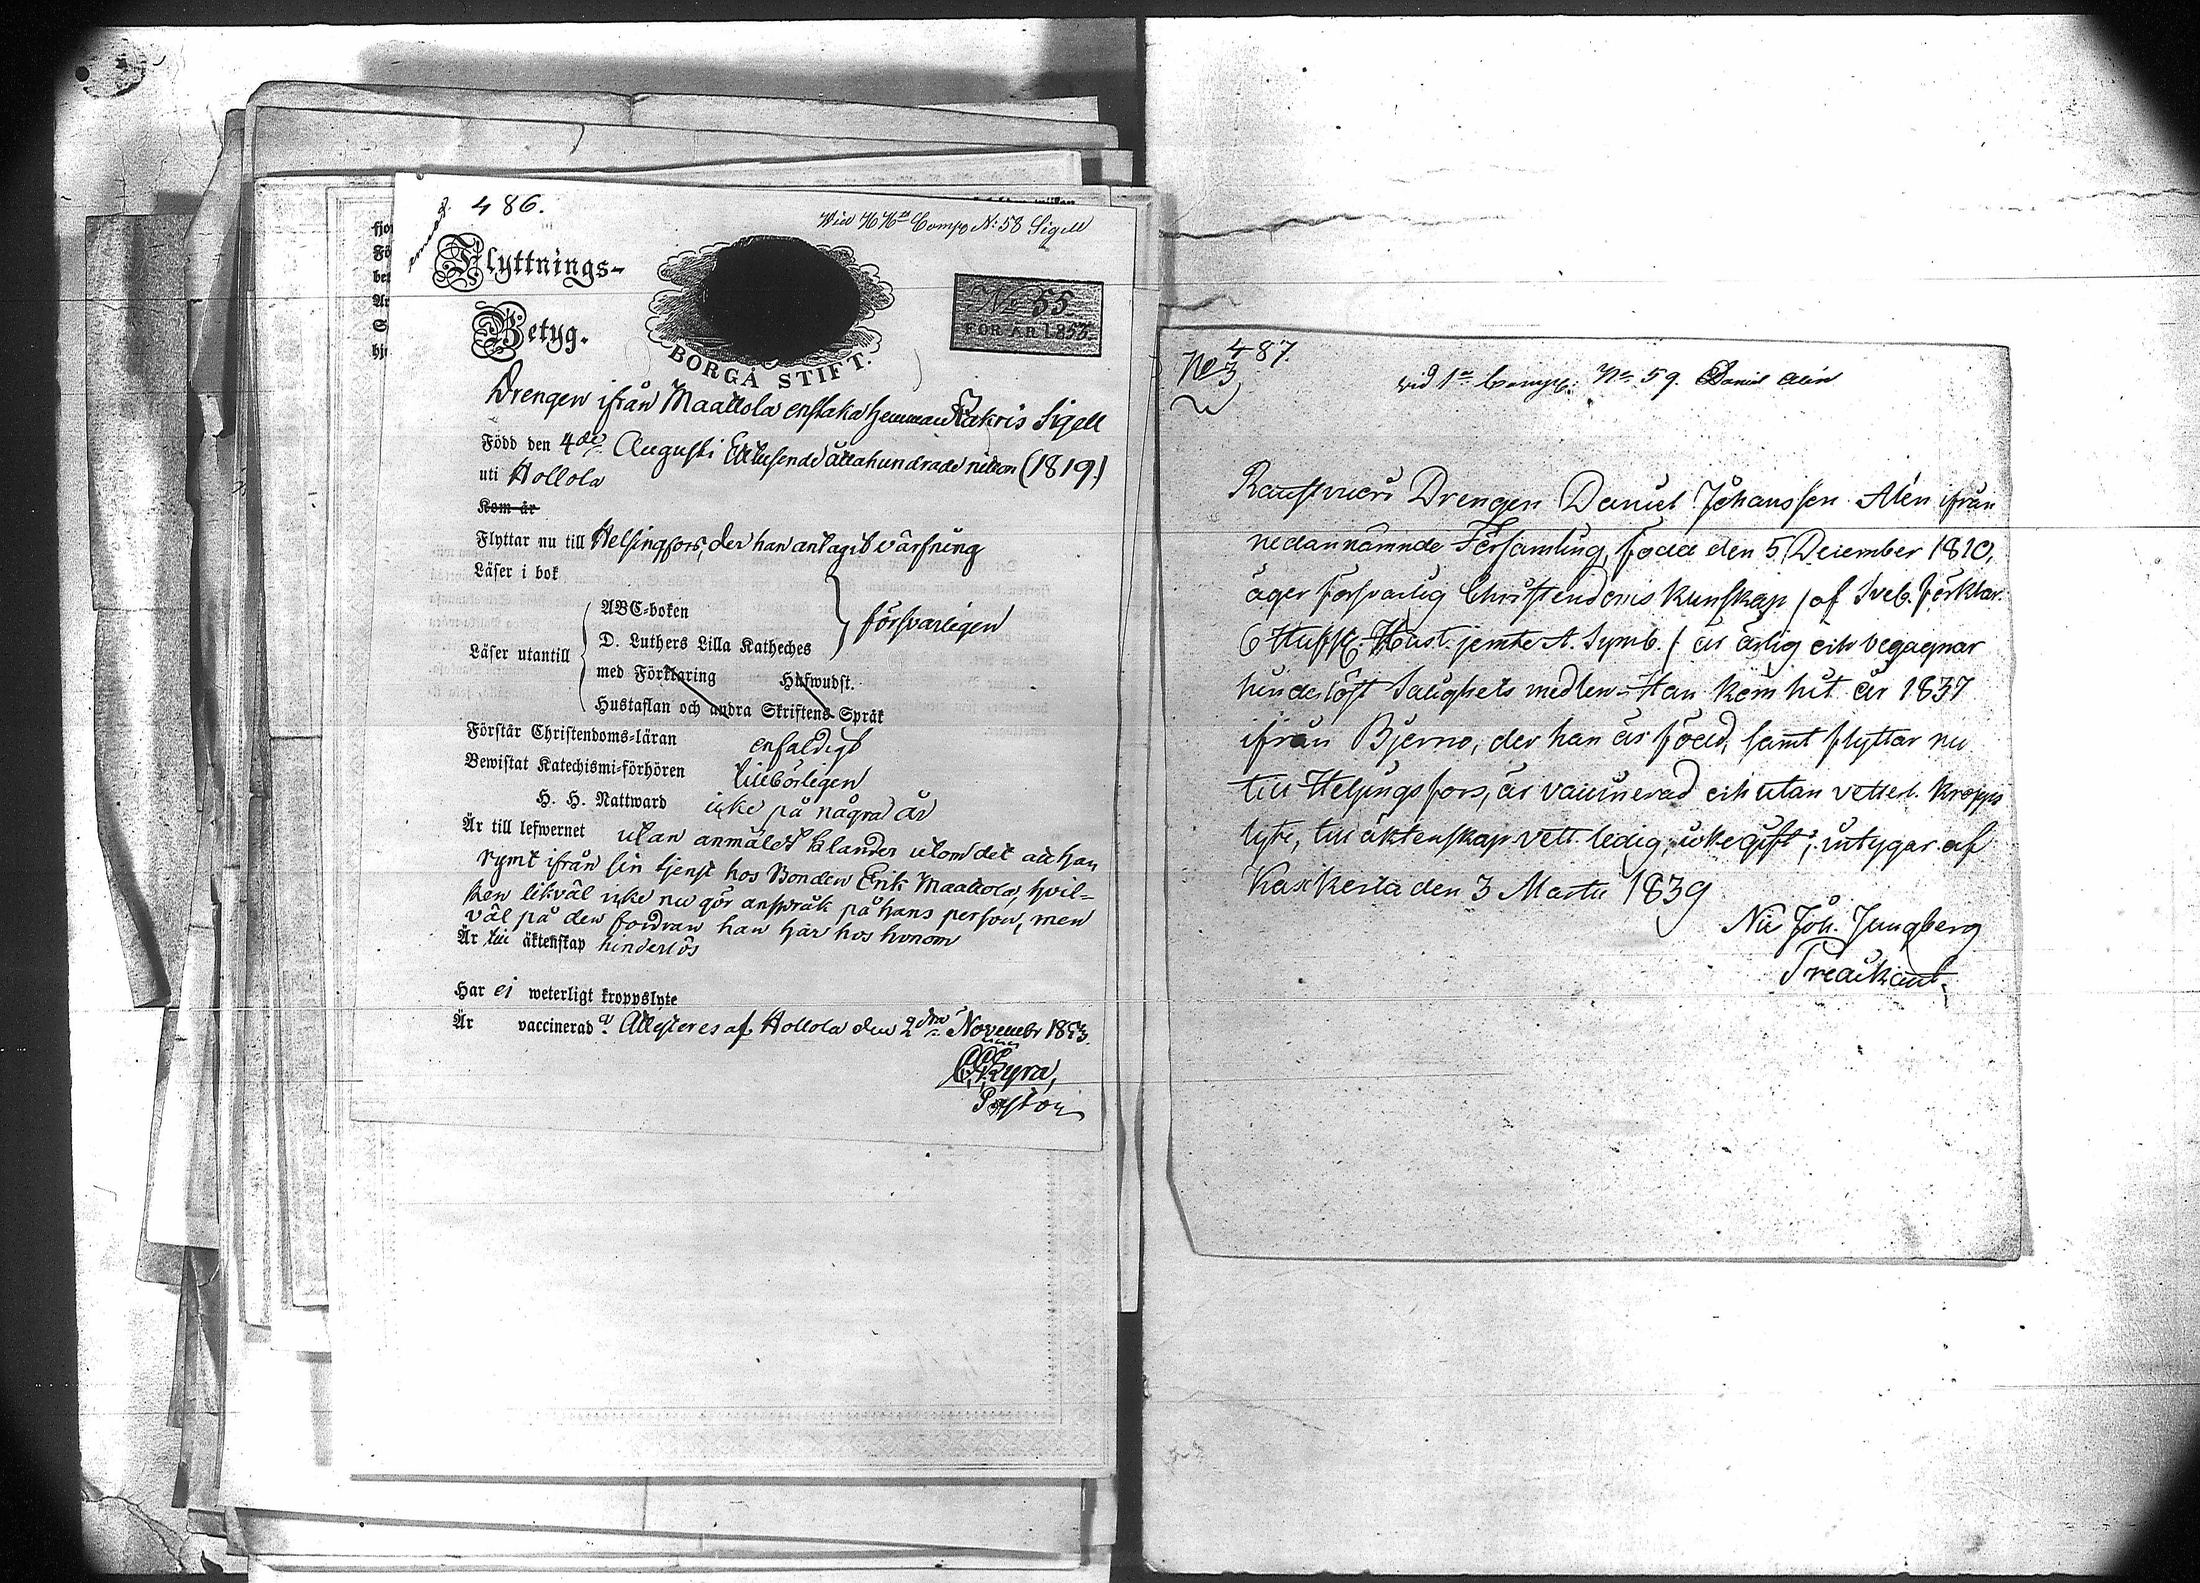 486.
Wid K Kns Comp N: 58 Sigell
Flyttnings-
Betyg.
BORGÅ STIFT.
No 55.
FÖR ÅR 1853.
Drengen ifrån Maattola enstaka hemman Zakris Sigell
Född den 4de Augusti Ettusende åttahundrade nitton (1819.)
uti Hollola
Kom år
Flyttar nu till Helsingfors, der han antagit värfning
Läser i bok
Läser utantill
ABC-boken
D. Luthers Lilla Katheches
med Förklaring Hufwudst.
Hustaflan och andra Skriftens Språk
försvarligen
Förstår Christendoms-läran enfaldigt
Bewistat Katechismi-förhören tillbörligen
H. H. Nattward icke på några år
Är till lefwernet utan anmäldt klander utom det att han
rymt ifrån sin tjenst hos Bonden Erik Maattola, hvil-
ken likväl icke nu gör anspråk på hans person, men
väl på den fordran han har hos honom
Är till äktenskap hinderlös
Har ei weterligt kroppslyte
Är vaccinerad. Attesteres af Hollola den 2dra Novembr 1853.
Kyra,
Pastor
487.
No 3
vid 1a Comp: No 59. Daniel Alén
Rautvuori Drengen Daniel Johansson Alén ifrån
nedannämnde Församling, född den 5 December 1810,
äger försvarlig Christendoms kunskap / af Sveb. förklar.
6 Hufst. Hust. jemte A. Symb. / är ärlig och begagnar
hinderlöst Salighets medlen. Han kom hit år 1837
ifrån Bjerno, der han är född, samt flyttar nu
till Helsingfors, är vaccinerad och utan vetterl. kropps
lyte, till äktenskap vett. ledig, icke gift; intygar af
Kaxkerta den 3 Martii 1839
Nic Joh. Ljungberg
Predikant.